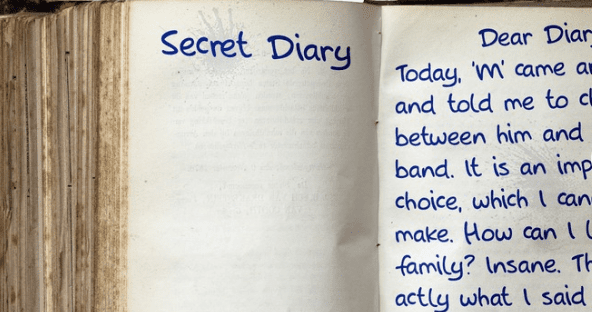 Secret Diary
Dear
Today, 'M' came
and told me to
between him and
band. It is an
choice, which I
make. How can I
family? Insane.
actly what I said